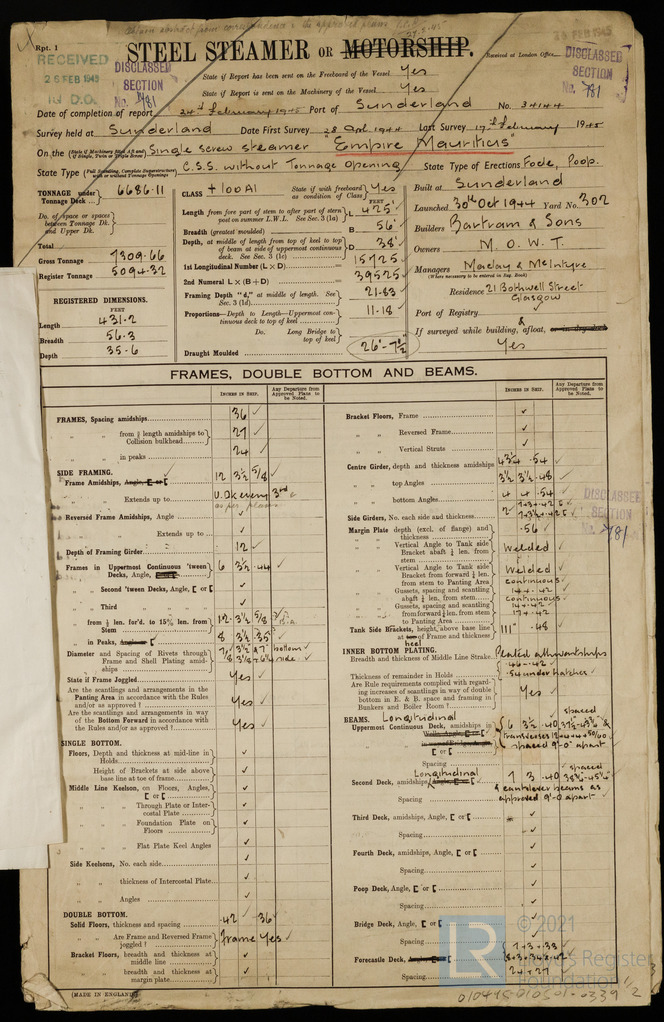 Rpt. 1
RECEIVED
26 FEB 1945
IN D.O.
DISCLASSED
SECTION
No. 781
STEEL STEAMER OR MOTORSHIP.
Received at London Office
26 FEB 1945
DISCLASSED
SECTION
No. 781
State if Report has been sent on the Freeboard of the Vessel Yes
State if Report is sent on the Machinery of the Vessel Yes
Date of completion of report 24th February 1945 Port of Sunderland No. 34144
Survey held at Sunderland Date First Survey 28 Apl 1944 Last Survey 17th February 1945
On the (State if Machinery fitted Aft and if Single, Twin or Triple Screw) Single screw steamer "Empire Mauritius"
State Type (Full Scantling, Complete Superstructure with or without Tonnage Openings) C.S.S. without Tonnage Opening State Type of Erections Fcle, Poop.
TONNAGE under Tonnage Deck 6686.11
Do. of space or spaces between Tonnage Dk. and Upper Dk.
Total
Gross Tonnage 7309.66
Register Tonnage 5094.32
REGISTERED DIMENSIONS.
FEET
Length 431.2
Breadth 56.3
Depth 35.6
CLASS +100A1 State if with freeboard as condition of Class Yes
FEET
Length from fore part of stem to after part of stern post on summer L.W.L. See Sec. 3 (1a) L 425'
Breadth (greatest moulded) B 56'
Depth, at middle of length from top of keel to top of beam at side of uppermost continuous deck. See Sec. 3 (1c) D 38'
1st Longitudinal Number (L x D) 15725
2nd Numeral L x (B + D) 39525
Framing Depth "d," at middle of length. See Sec. 3 (1d) 21.83
Proportions—Depth to Length—Uppermost continuous deck to top of keel 11.18
Do. Long Bridge to top of keel
Draught Moulded 26'-7½"
Built at Sunderland
Launched 30th Oct 1944 Yard No. 302
Builders Bartram & Sons
Owners M. O. W. T.
Managers Maclay & McIntyre
(Where necessary to be entered in Reg. Book)
Residence 21 Bothwell Street Glasgow
Port of Registry
If surveyed while building, afloat, & or in dry dock
Yes
FRAMES, DOUBLE BOTTOM AND BEAMS.
INCHES IN SHIP.
Any Departure from Approved Plans to be Noted.
FRAMES, Spacing amidships 36 ✓
" " from ⅗ length amidships to Collision bulkhead 27 ✓
" " in peaks 24 ✓
SIDE FRAMING.
Frame Amidships, Angle, [ or [ 12 3½ 5/8 ✓
" " Extends up to U. Dk every 3rd
as per plan
Reversed Frame Amidships, Angle ✓
" " Extends up to ✓
Depth of Framing Girder 12 ✓
Frames in Uppermost Continuous 'tween Decks, Angle, 6 3½ .44 ✓
" Second 'tween Decks, Angle, [ or [ ✓
" Third " " " ✓
" from ⅕ len. for'd. to 15% len. from Stem 12 3½ 5/8
" in Peaks, Angle or [ 8 3½ .35
Diameter and Spacing of Rivets through Frame and Shell Plating amidships 7/8 3½ & 7" bottom
7/8 3½ + 6¼ side
State if Frame Joggled Yes ✓
Are the scantlings and arrangements in the Panting Area in accordance with the Rules and/or as approved? Yes ✓
Are the scantlings and arrangements in way of the Bottom Forward in accordance with the Rules and/or as approved? Yes ✓
SINGLE BOTTOM.
Floors, Depth and thickness at mid-line in Holds ✓
" Height of Brackets at side above base line at toe of frame ✓
Middle Line Keelson, on Floors, Angles, [ or [ ✓
" " Through Plate or Intercostal Plate ✓
" " Foundation Plate on Floors ✓
" " Flat Plate Keel Angles ✓
Side Keelsons, No. each side ✓
" " thickness of Intercostal Plate ✓
" " Angles ✓
DOUBLE BOTTOM.
Solid Floors, thickness and spacing .42 36 ✓
" " Are Frame and Reversed Frame joggled? Frame Yes ✓
Bracket Floors, breadth and thickness at middle line ✓
" " breadth and thickness at margin plate ✓
INCHES IN SHIP.
Any Departure from Approved Plans to be Noted.
Bracket Floors, Frame ✓
" " Reversed Frame ✓
" " Vertical Struts ✓
Centre Girder, depth and thickness amidships 43¼ .54 ✓
" " top Angles 3½ 3½ .48 ✓
" " bottom Angles 4 4 .54 ✓
Side Girders, No. each side and thickness 2
Margin Plate depth (excl. of flange) and thickness .56 ✓
" " Vertical Angle to Tank side Bracket abaft ¼ len. from stem Welded ✓
" " Vertical Angle to Tank side Bracket from forward ¼ len. from stem to Panting Area Welded ✓
" " Gussets, spacing and scantling abaft ¼ len. from stem continuous
" " Gussets, spacing and scantling from forward ¼ len. from stem to Panting Area continuous
Tank Side Brackets, height above base line at toe heel of Frame and thickness 111" .48 ✓
INNER BOTTOM PLATING.
Breadth and thickness of Middle Line Strake Plated athwartships
Thickness of remainder in Holds .46-.42
.54 under hatches ✓
Are Rule requirements complied with regarding increases of scantlings in way of double bottom in E. & B. space and framing in Bunkers and Boiler Room? Yes ✓
BEAMS. Longitudinal
Uppermost Continuous Deck, amidships 6 3½ .40 spaced
transverses
spaced 9'-0" apart
Spacing
Second Deck, amidships, Longitudinal 7 3 .40 spaced
& cantilever beams as
Spacing approved 9'-0 apart ✓
Third Deck, amidships, Angle, [ or [ ✓
Spacing ✓
Fourth Deck, amidships, Angle, [ or [ ✓
Spacing ✓
Poop Deck, Angle, [ or [ ✓
Spacing ✓
Bridge Deck, Angle, [ or [ ✓
Spacing ✓
Forecastle Deck, Angle, [ or [ 7 + 3 + .33
Spacing 24 + 27
DISCLASSED
SECTION
No. 781
(MADE IN ENGLAND)
LR
© 2021
Lloyd's Register
Foundation
010495-010501-0339 1/2